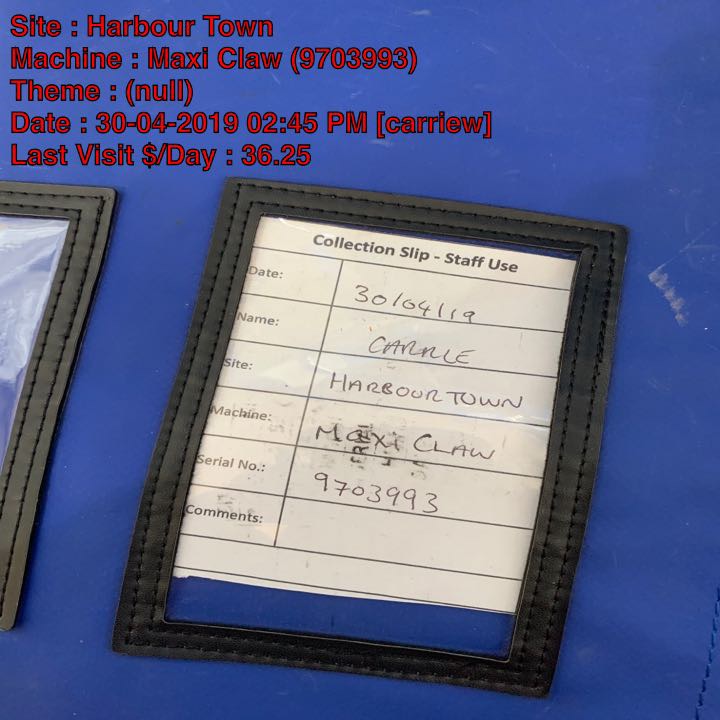 Site : Harbour Town
Machine : Maxi Claw (9703993)
Theme : (null)
Date : 30-04-2019 02:45 PM [carriew]
Last Visit $/Day : 36.25
Collection Slip - Staff Use
Date: 30/04/19
Name: CARRIE
Site: HARBOUR TOWN
Machine: MAXI CLAW
Serial No.: 9703993
Comments: